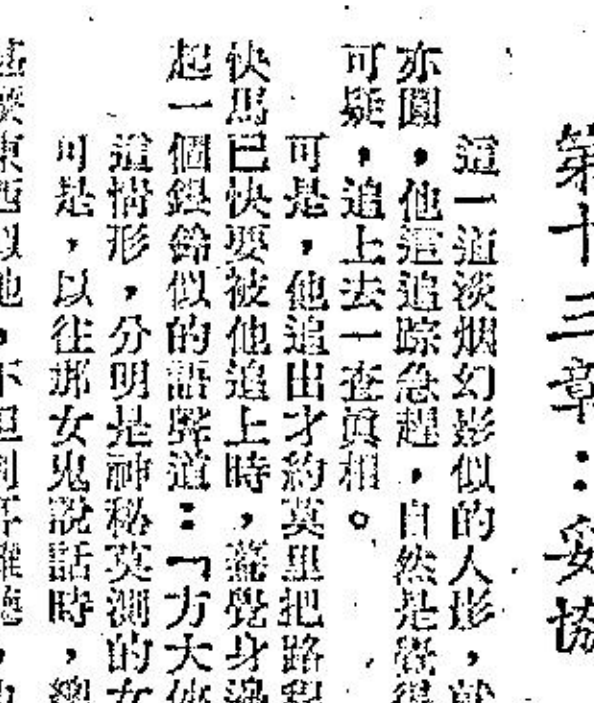 第十三章：妥協
這一道淡烟幻影似的人影，就
亦園，他這追踪急趕，自然是覺得
可疑，追上去一查眞相。
可是，他追出才約莫里把路程
快馬已快要被他追上時，驀覺身邊
起一個銀鈴似的語聲道：「方大俠
這情形，分明是神秘莫測的女
可是，以往那女鬼說話時，總
東西似他，不但